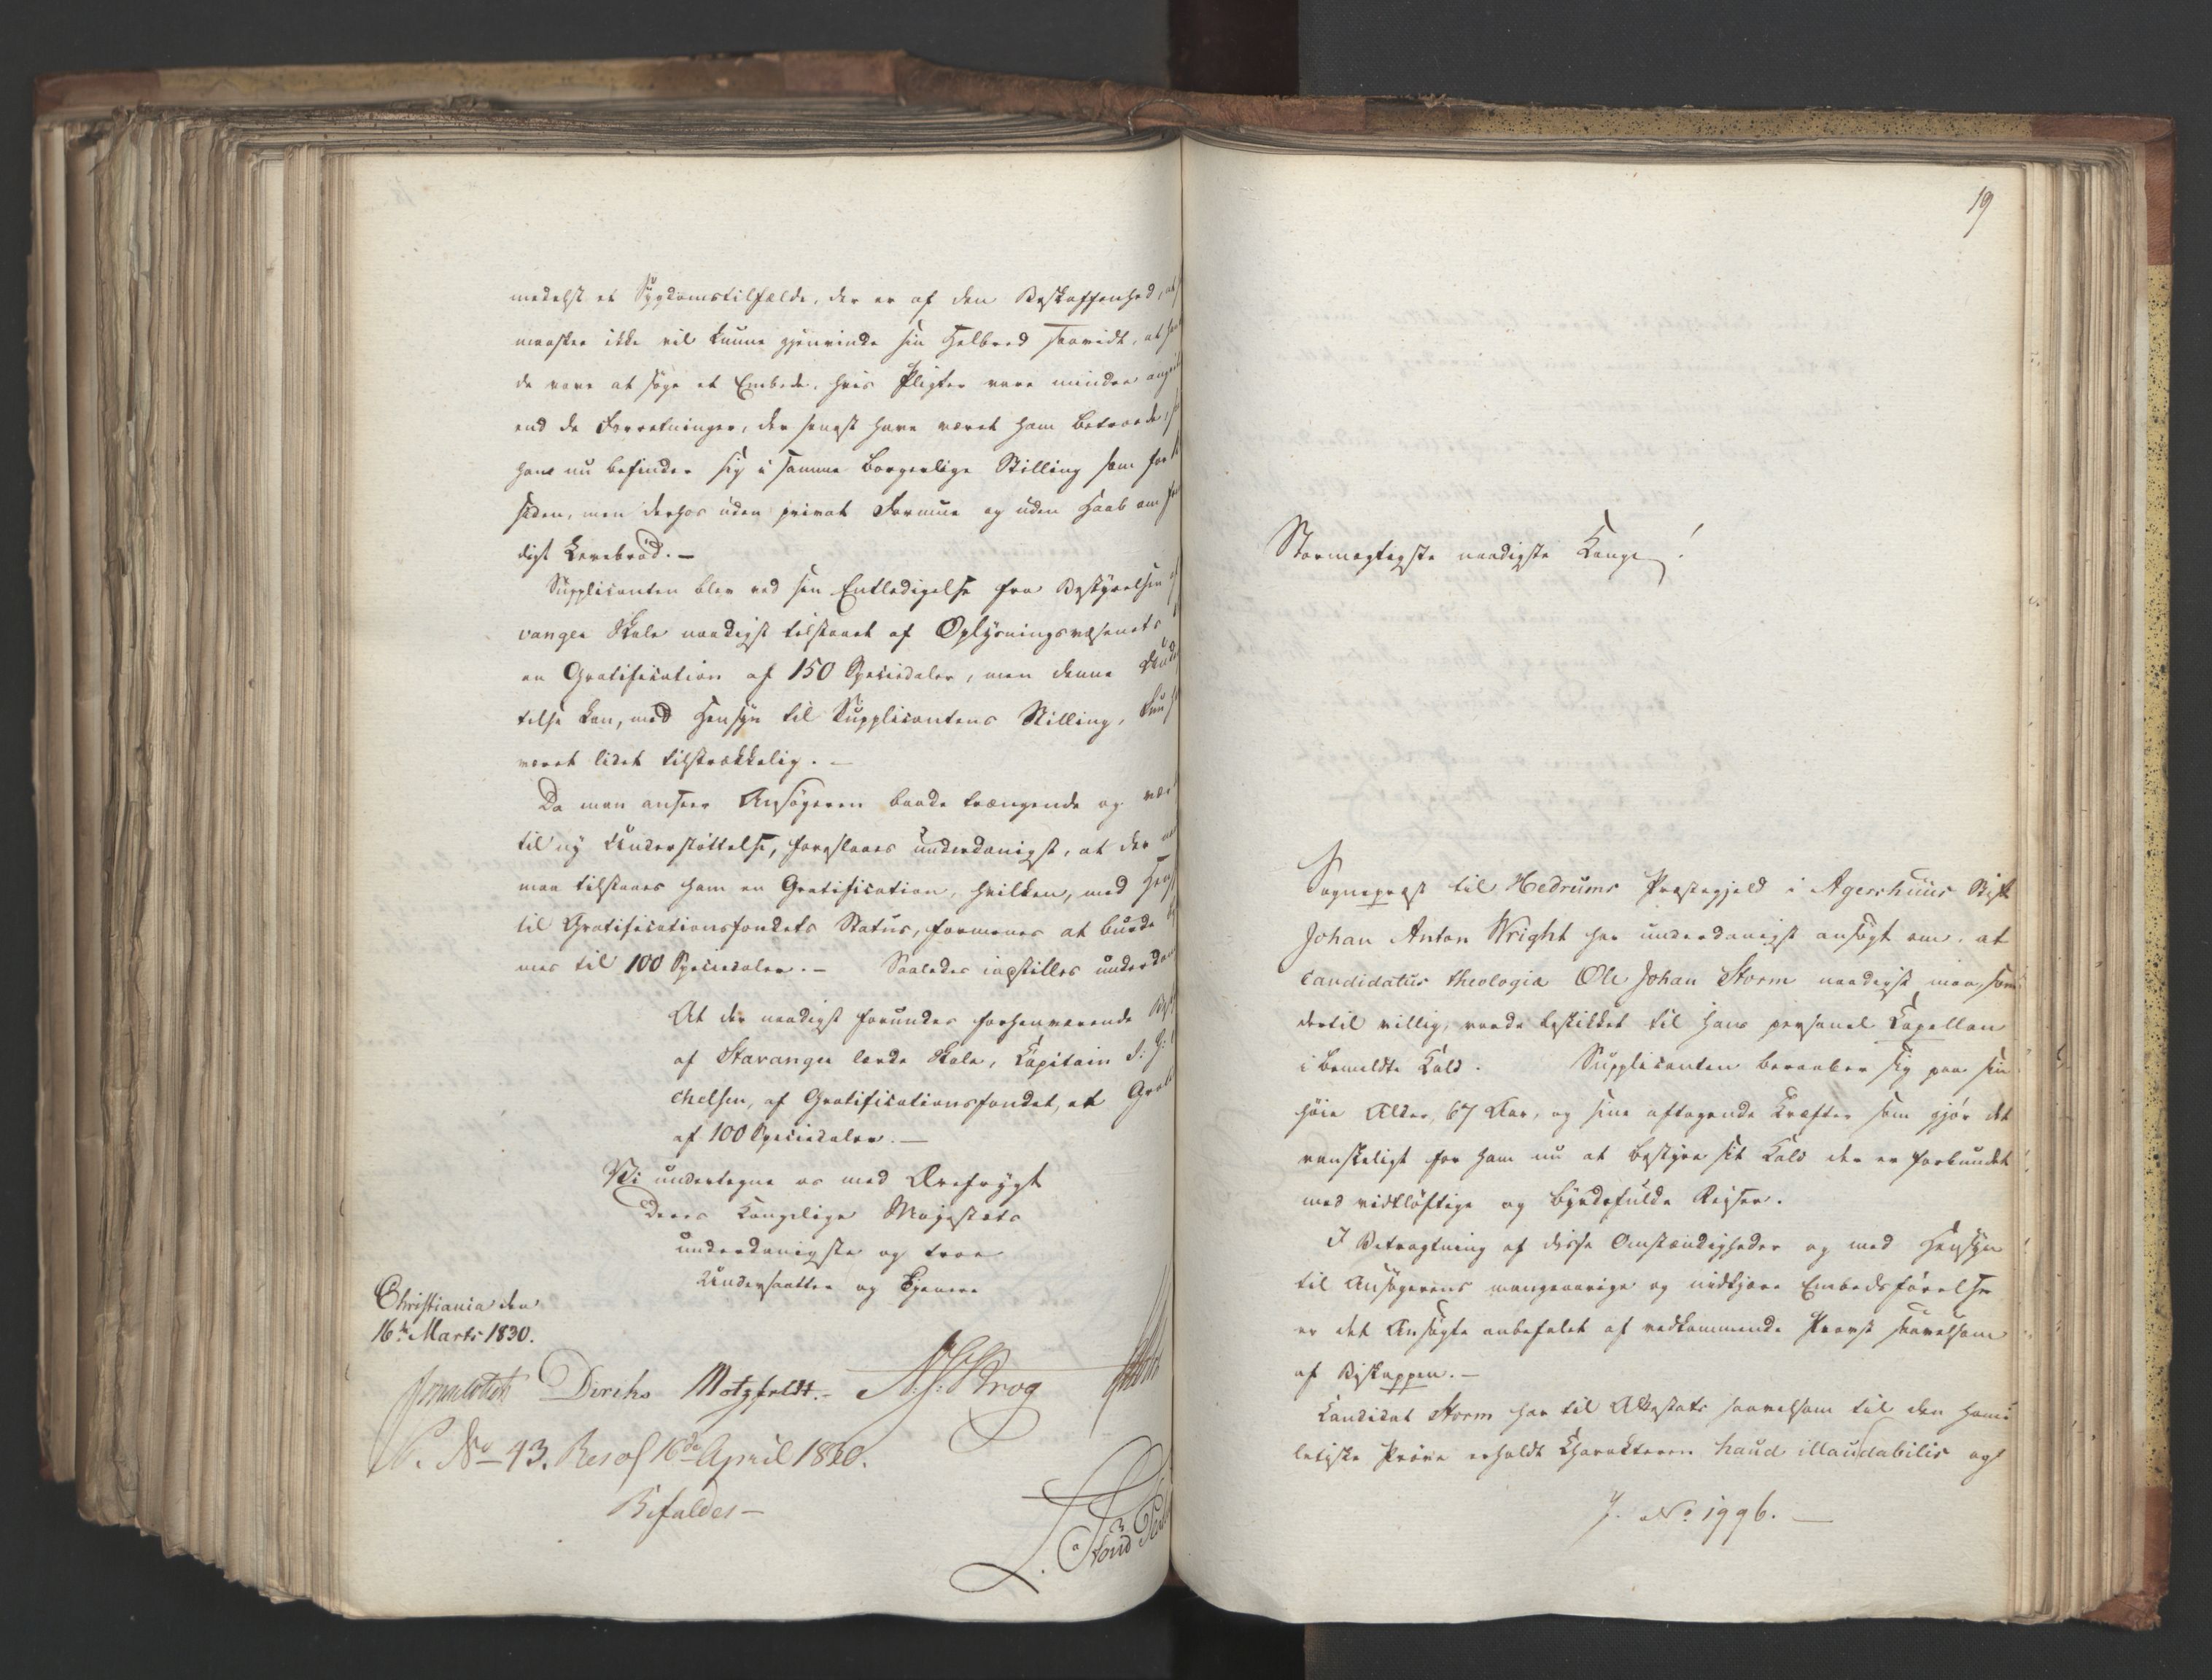 medelst et Sygdomstilfælde, der er af den Beskaffenhed, at
maaskee ikke vil kunne gjenvinde sin Helbred saavidt, at
de være at søge et Embede, hvis Pligter vare mindre
end de Forretninger, der senest have været ham betroede,
han nu befinder sig i samme borgerlige Stilling som
siden, men derhos uden privat Formue og uden Haab om
digt Levebrød. —
Supplicanten blev ved sin Entledigelse fra Bestyrelsen
vanger Skole naadigst tilstaaet af Oplysningsvæsenets
en Gratification af 150 Speciedaler, men denne
telse kan, med Hensyn til Supplicantens Stilling, kun
været lidet tilstrækkelig. —
Da man anseer Ansøgeren baade trængende og
til ny Understøttelse, foreslaaes underdanigst, at der
maa tilstaaes ham en Gratification, hvilken, med
til Gratificationsfondets Status, formenes at burde
mes til 100 Speciedaler. — Saaledes indstilles
At der naadigst forundes forhenværende
af Stavanger lærde Skole, Capitain
chelsen, af Gratificationsfondet, et
af 100 Speciedaler. —
Vi undertegne os med Ærefrygt
Deres Kongelige Majestæts
underdanigste og troe
Undersaatter og Tjenere
Christiania den
16de Marts 1830.
Diriks Motzfeldt. — Krog
No 43. Resol 16de April 1830.
Bifaldes —
19
Stormægtigste naadigste Konge!
Sognepræst til Hedrums Præstegjeld i Agershuus Stift
Johan Anton Wright har underdanigst ansøgt om, at
candidatus theologiæ Ole Johan Storm naadigst maa, som
dertil villig, vorde beskikket til hans personel Capellan
i bemeldte Kald. Supplicanten beraaber sig paa sin
høie Alder, 67 Aar, og sine aftagende Kræfter som gjør det
vanskeligt for ham nu at bestyre sit Kald der er forbundet
med vidtløftige og byrdefulde Reiser.
I Betragtning af disse Omstændigheder og med Hensyn
til Ansøgerens mangeaarige og nidkjære Embedsførelse
er det Ansøgte anbefalet af vedkommende Provst saavelsom
af Biskoppen. —
Candidat Storm har til Attestats saavelsom til den homi
letiske Prøve erholdt Charakteren haud illaudabilis og
J. No 1996. —